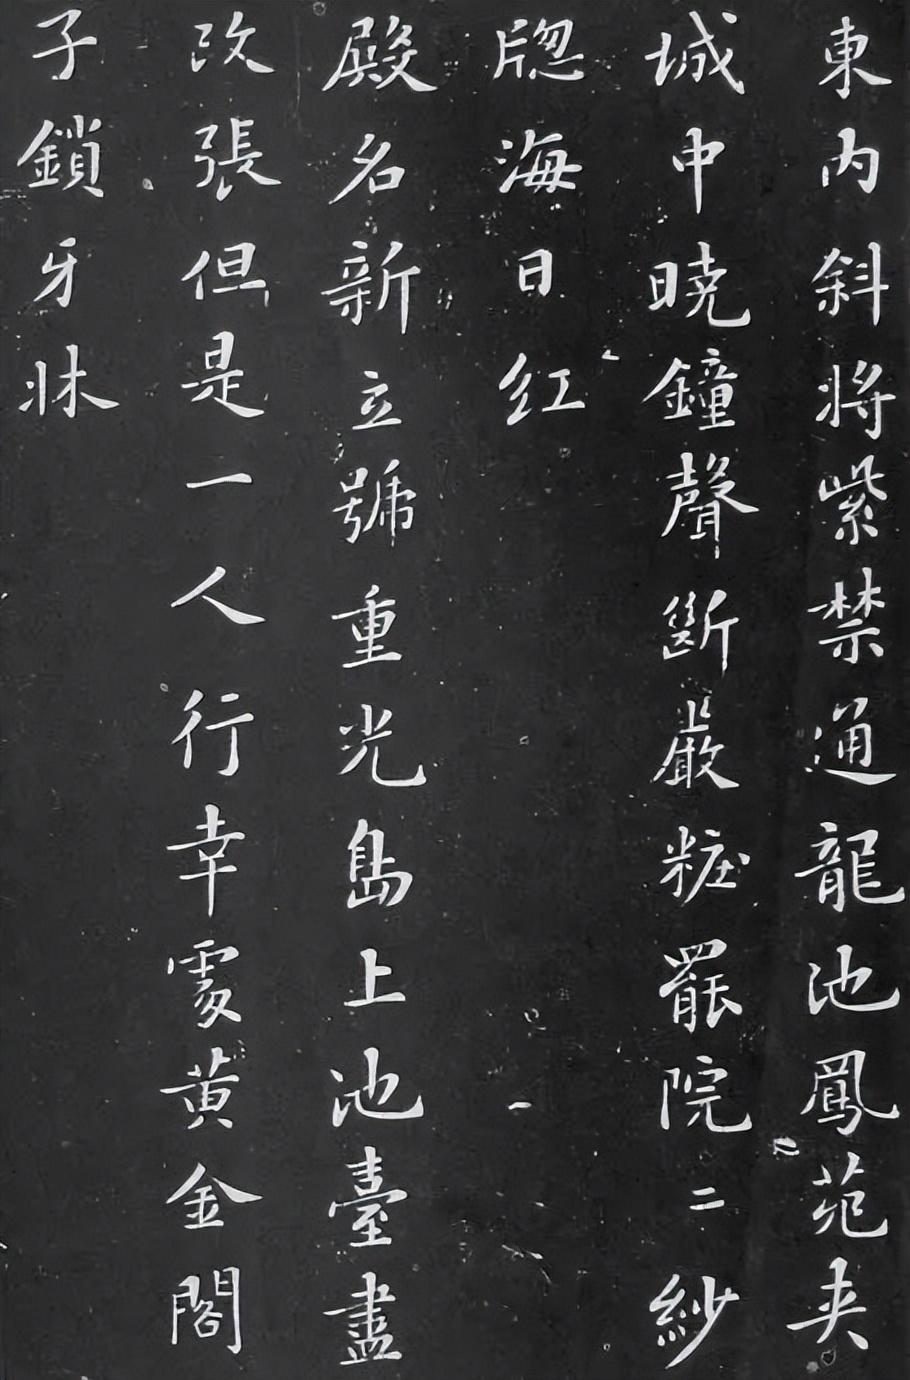 東内斜将紫禁通龍池鳳苑夾
城中曉鐘聲斷嚴粧罷院二紗
牎海日红
殿名新立號重光島上池臺盡
改張但是一人行幸處黄金閣
子鎖牙牀